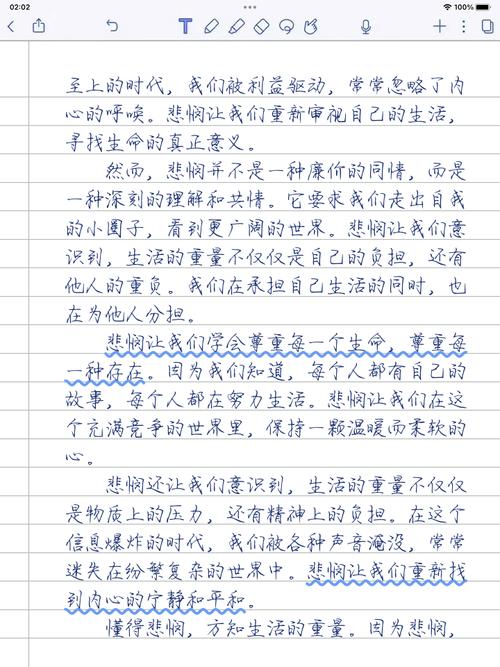 02:02
100%
至上的时代，我们被利益驱动，常常忽略了内
心的呼唤。悲悯让我们重新审视自己的生活，
寻找生命的真正意义。
然而，悲悯并不是一种廉价的同情，而是
一种深刻的理解和共情。它要求我们走出自我
的小圈子，看到更广阔的世界。悲悯让我们意
识到，生活的重量不仅仅是自己的负担，还有
他人的重负。我们在承担自己生活的同时，也
在为他人分担。
悲悯让我们学会尊重每一个生命，尊重每
一种存在。因为我们知道，每个人都有自己的
故事，每个人都在努力生活。悲悯让我们在这
个充满竞争的世界里，保持一颗温暖而柔软的
心。
悲悯还让我们意识到，生活的重量不仅仅
是物质上的压力，还有精神上的负担。在这个
信息爆炸的时代，我们被各种声音淹没，常常
迷失在纷繁复杂的世界中。悲悯让我们重新找
到内心的宁静和平和。
懂得悲悯，方知生活的重量。因为悲悯，